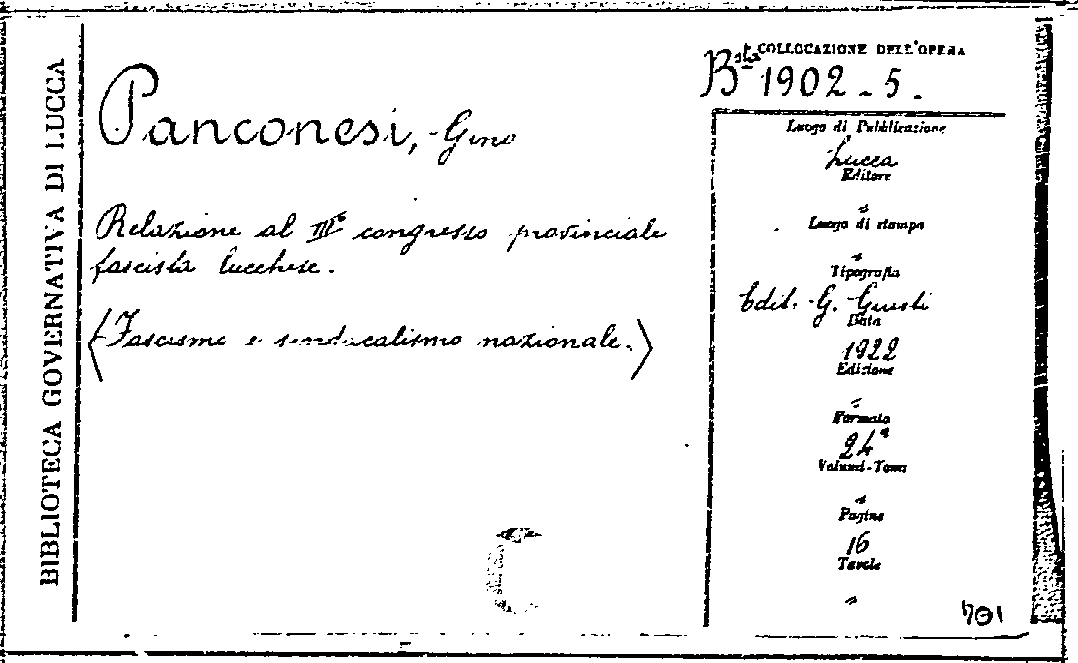 BIBLIOTECA GOVERNATIVA DI LUCCA
COLLOCAZIONE DELL'OPERA
Bsta 1902 - 5.
Panconesi, Gino
Relazione al III° congresso provinciale
fascista lucchese.
(Fascismo e sindacalismo nazionale.)
Luogo di Pubblicazione
Lucca
Editore
"
Luogo di stampa
"
Tipografia
Edit. G. Giusti
Data
1922
Edizione
"
Formato
24°
Volumi-Tomi
"
Pagine
16
Tavole
"